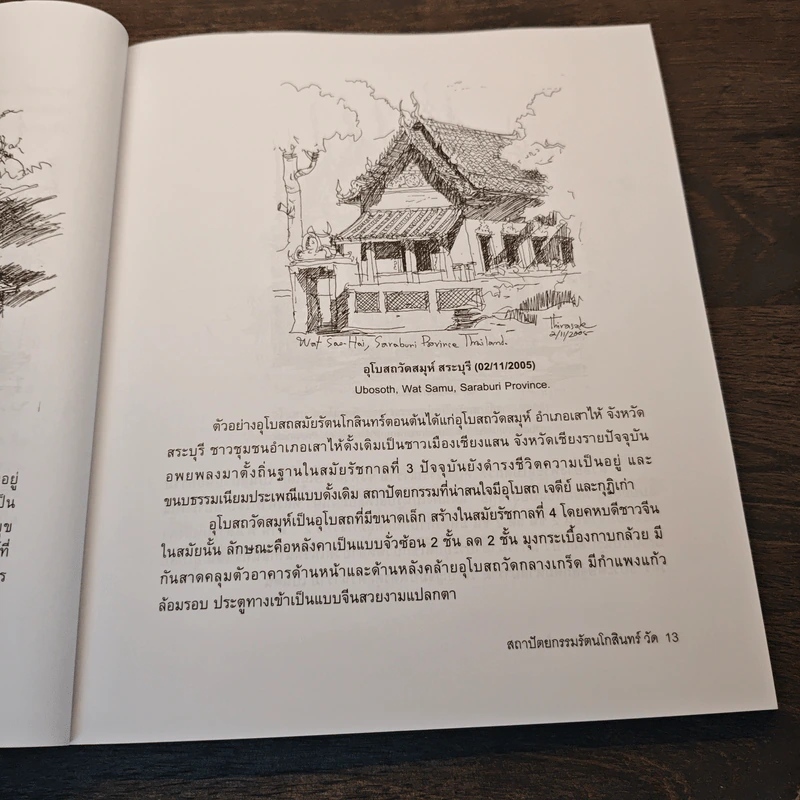 อยู่
เป็น
ที่
Wat Sao-Hai, Saraburi Province Thailand.
Thirasak
2/11/2005
อุโบสถวัดสมุห์ สระบุรี (02/11/2005)
Ubosoth, Wat Samu, Saraburi Province.
ตัวอย่างอุโบสถสมัยรัตนโกสินทร์ตอนต้นได้แก่อุโบสถวัดสมุห์ อำเภอเสาไห้ จังหวัด
สระบุรี ชาวชุมชนอำเภอเสาไห้ดั้งเดิมเป็นชาวเมืองเชียงแสน จังหวัดเชียงรายปัจจุบัน
อพยพลงมาตั้งถิ่นฐานในสมัยรัชกาลที่ 3 ปัจจุบันยังดำรงชีวิตความเป็นอยู่ และ
ขนบธรรมเนียมประเพณีแบบดั้งเดิม สถาปัตยกรรมที่น่าสนใจมีอุโบสถ เจดีย์ และกุฏิเก่า
อุโบสถวัดสมุห์เป็นอุโบสถที่มีขนาดเล็ก สร้างในสมัยรัชกาลที่ 4 โดยคหบดีชาวจีน
ในสมัยนั้น ลักษณะคือหลังคาเป็นแบบจั่วซ้อน 2 ชั้น ลด 2 ชั้น มุงกระเบื้องกาบกล้วย มี
กันสาดคลุมตัวอาคารด้านหน้าและด้านหลังคล้ายอุโบสถวัดกลางเกร็ด มีกำแพงแก้ว
ล้อมรอบ ประตูทางเข้าเป็นแบบจีนสวยงามแปลกตา
สถาปัตยกรรมรัตนโกสินทร์ วัด 13